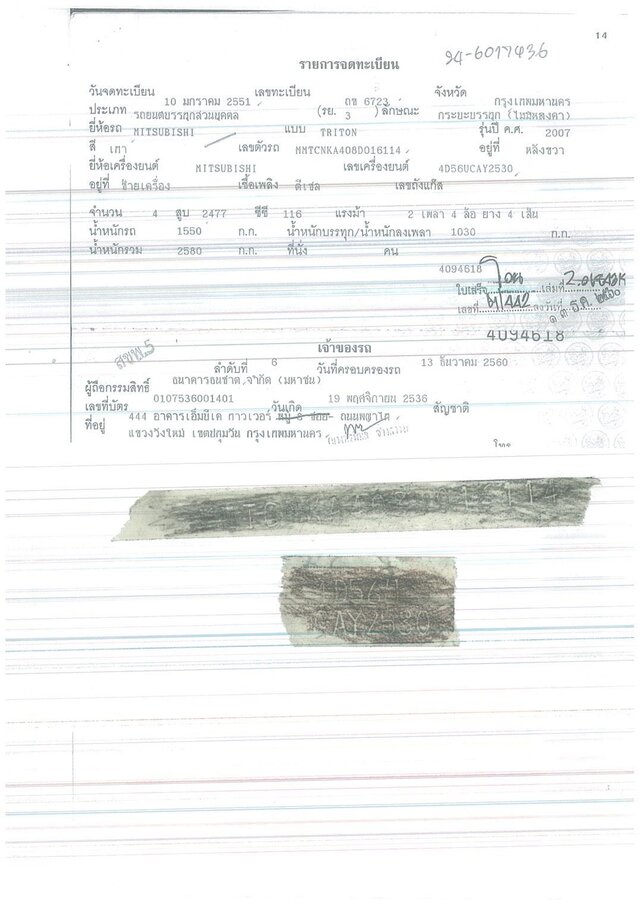 14
94-6017436
รายการจดทะเบียน
วันจดทะเบียน 10 มกราคม 2551 เลขทะเบียน ถช 6723 จังหวัด กรุงเทพมหานคร
ประเภท รถยนต์บรรทุกส่วนบุคคล (รย. 3 ) ลักษณะ กระบะบรรทุก (ไม่มีหลังคา)
ยี่ห้อรถ MITSUBISHI แบบ TRITON รุ่นปี ค.ศ. 2007
สี เทา เลขตัวรถ MMTCNKA408D016114 อยู่ที่ หลังขวา
ยี่ห้อเครื่องยนต์ MITSUBISHI เลขเครื่องยนต์ 4D56UCAY2530
อยู่ที่ ซ้ายเครื่อง เชื้อเพลิง ดีเซล เลขถังแก๊ส
จำนวน 4 สูบ 2477 ซีซี 116 แรงม้า 2 เพลา 4 ล้อ ยาง 4 เส้น
น้ำหนักรถ 1550 ก.ก. น้ำหนักบรรทุก/น้ำหนักลงเพลา 1030 ก.ก.
น้ำหนักรวม 2580 ก.ก. ที่นั่ง คน
4094618
ใบเสร็จ โอน เล่มที่
เลขที่ 442 ลงวันที่ ธ.ค. ๒๕๖๐
4094618
สขพ.5
เจ้าของรถ
ลำดับที่ 6 วันที่ครอบครองรถ 13 ธันวาคม 2560
ผู้ถือกรรมสิทธิ์ ธนาคารธนชาต จำกัด (มหาชน)
เลขที่บัตร 0107536001401 วันเกิด 19 พฤศจิกายน 2536 สัญชาติ
ที่อยู่ 444 อาคารเอ็มบีเค ทาวเวอร์ หมู่ 8 ซอย- ถนนพญาไท
แขวงวังใหม่ เขตปทุมวัน กรุงเทพมหานคร
ไทย
CAY2530